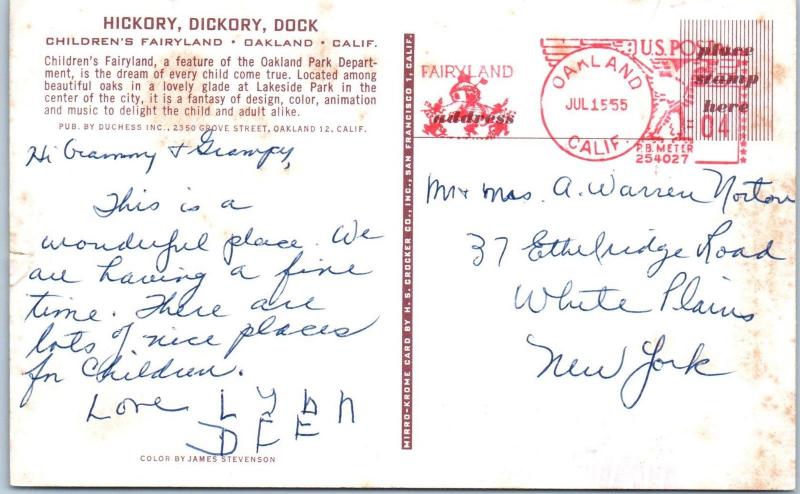 HICKORY, DICKORY, DOCK
CHILDREN'S FAIRYLAND • OAKLAND • CALIF.
Children's Fairyland, a feature of the Oakland Park Depart-
ment, is the dream of every child come true. Located among
beautiful oaks in a lovely glade at Lakeside Park in the
center of the city, it is a fantasy of design, color, animation
and music to delight the child and adult alike.
PUB. BY DUCHESS INC., 2350 GROVE STREET, OAKLAND 12, CALIF.
Hi Grammy + Grampy,
This is a
wonderful place. We
are having a fine
time. There are
lots of nice places
for Children.
Love LYNN
DEE
COLOR BY JAMES STEVENSON
MIRRO-KROME CARD BY H. S. CROCKER CO., INC., SAN FRANCISCO 1, CALIF.
FAIRYLAND
address
OAKLAND
JUL 15 '55
CALIF.
U.S. POST
place
stamp
here
04
P.B. METER
254027
Mr + Mrs. A. Warren Norton
37 Ethelridge Road
White Plains
New York